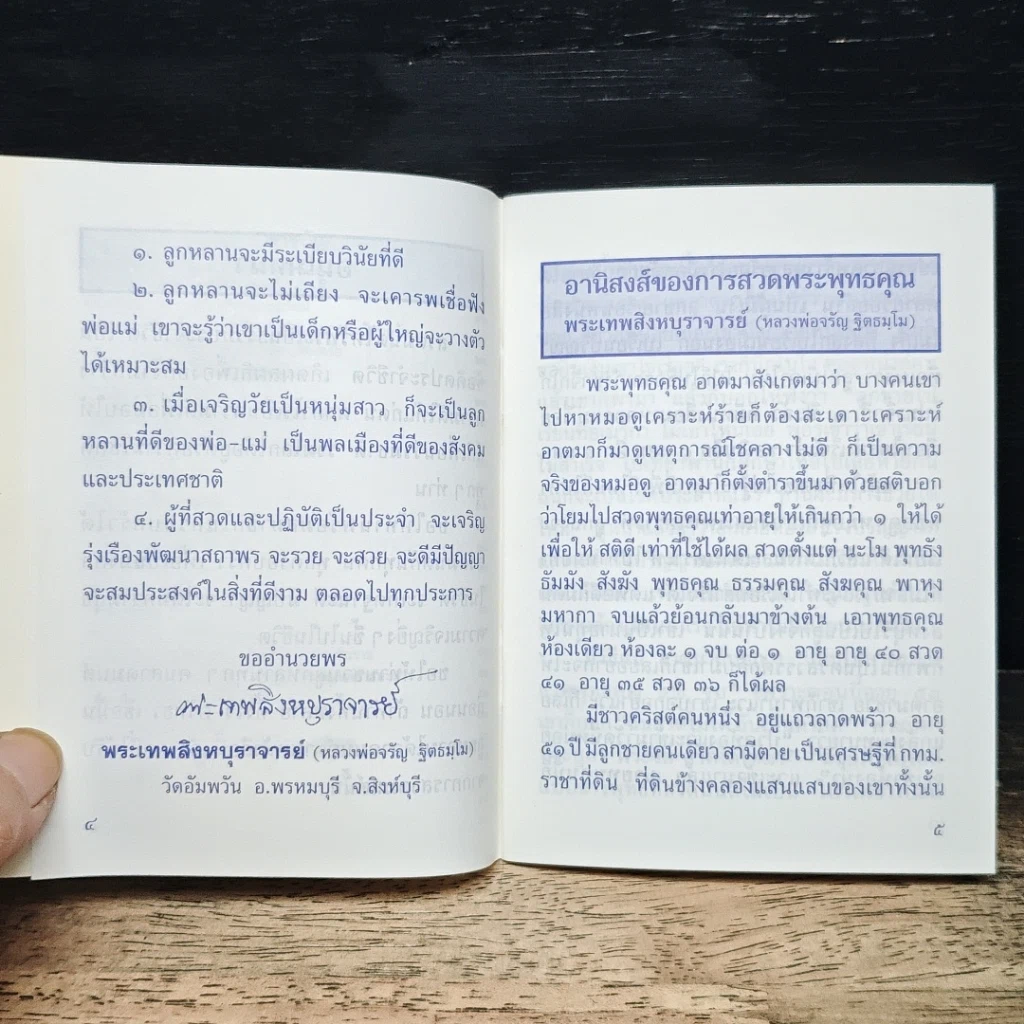 ๑. ลูกหลานจะมีระเบียบวินัยที่ดี
๒. ลูกหลานจะไม่เถียง จะเคารพเชื่อฟัง
พ่อแม่ เขาจะรู้ว่าเขาเป็นเด็กหรือผู้ใหญ่จะวางตัว
ได้เหมาะสม
๓. เมื่อเจริญวัยเป็นหนุ่มสาว ก็จะเป็นลูก
หลานที่ดีของพ่อ-แม่ เป็นพลเมืองที่ดีของสังคม
และประเทศชาติ
๔. ผู้ที่สวดและปฏิบัติเป็นประจำ จะเจริญ
รุ่งเรืองพัฒนาสถาพร จะรวย จะสวย จะดีมีปัญญา
จะสมประสงค์ในสิ่งที่ดีงาม ตลอดไปทุกประการ
ขออำนวยพร
พระเทพสิงหบุราจารย์
พระเทพสิงหบุราจารย์ (หลวงพ่อจรัญ ฐิตธมฺโม)
วัดอัมพวัน อ.พรหมบุรี จ.สิงห์บุรี
๔
อานิสงส์ของการสวดพระพุทธคุณ
พระเทพสิงหบุราจารย์ (หลวงพ่อจรัญ ฐิตธมฺโม)
พระพุทธคุณ อาตมาสังเกตมาว่า บางคนเขา
ไปหาหมอดูเคราะห์ร้ายก็ต้องสะเดาะเคราะห์
อาตมาก็มาดูเหตุการณ์โชคลางไม่ดี ก็เป็นความ
จริงของหมอดู อาตมาก็ตั้งตำราขึ้นมาด้วยสติบอก
ว่าโยมไปสวดพุทธคุณเท่าอายุให้เกินกว่า ๑ ให้ได้
เพื่อให้ สติดี เท่าที่ใช้ได้ผล สวดตั้งแต่ นะโม พุทธัง
ธัมมัง สังฆัง พุทธคุณ ธรรมคุณ สังฆคุณ พาหุง
มหากา จบแล้วย้อนกลับมาข้างต้น เอาพุทธคุณ
ห้องเดียว ห้องละ ๑ จบ ต่อ ๑ อายุ อายุ ๔๐ สวด
๔๑ อายุ ๓๕ สวด ๓๖ ก็ได้ผล
มีชาวคริสต์คนหนึ่ง อยู่แถวลาดพร้าว อายุ
๕๑ ปี มีลูกชายคนเดียว สามีตาย เป็นเศรษฐีที่ กทม.
ราชาที่ดิน ที่ดินข้างคลองแสนแสบของเขาทั้งนั้น
๕